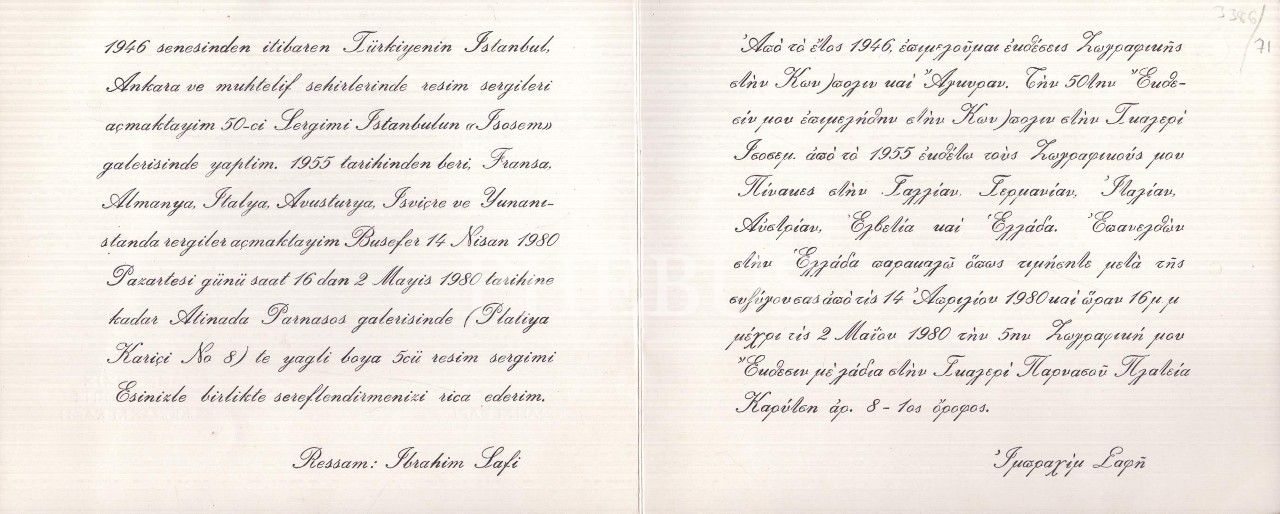 1946 senesinden itibaren Türkiyenin Istanbul,
Ankara ve muhtelif sehirlerinde resim sergileri
açmaktayim 50-ci Sergimi Istanbulun «Isosem»
galerisinde yaptim. 1955 tarihinden beri, Fransa,
Almanya, Italya, Avusturya, Isviçre ve Yunani-
standa rergiler açmaktayim Busefer 14 Nisan 1980
Pazartesi günü saat 16 dan 2 Mayis 1980 tarihine
kadar Atinada Parnasos galerisinde (Platiya
Kariçi No 8) te yagli boya 5cü resim sergimi
Esinizle birlikte sereflendirmenizi rica ederim.
Ressam: Ibrahim Safi
3386/71
Ἀπὸ τὸ ἔτος 1946, ἐπιμελοῦμαι ἐκθέσεις Ζωγραφικῆς
στὴν Κων)πολιν καὶ Ἄγκυραν. Τὴν 50την Ἔκθε-
σίν μου ἐπιμελήθην στὴν Κων)πολιν στὴν Γκαλερί
Ισοσεμ. ἀπὸ τὸ 1955 ἐκθέτω τοὺς Ζωγραφικούς μου
Πίνακες στὴν Γαλλίαν, Γερμανίαν, Ἰταλίαν,
Αὐστρίαν, Ἑλβετία καὶ Ἑλλάδα. Ἐπανελθὼν
στὴν Ἑλλάδα παρακαλῶ ὅπως τιμήσητε μετὰ τῆς
συζύγου σας ἀπὸ τὶς 14 Ἀπριλίου 1980 καὶ ὥραν 16μ μ
μέχρι τὶς 2 Μαΐου 1980 τὴν 5ην Ζωγραφική μου
Ἔκθεσιν μὲ λάδια στὴν Γκαλερὶ Παρνασοῦ Πλατεία
Καρύτση ἀρ. 8 - 1ος ὄροφος.
Ἰμπραχὶμ Σαφῆ